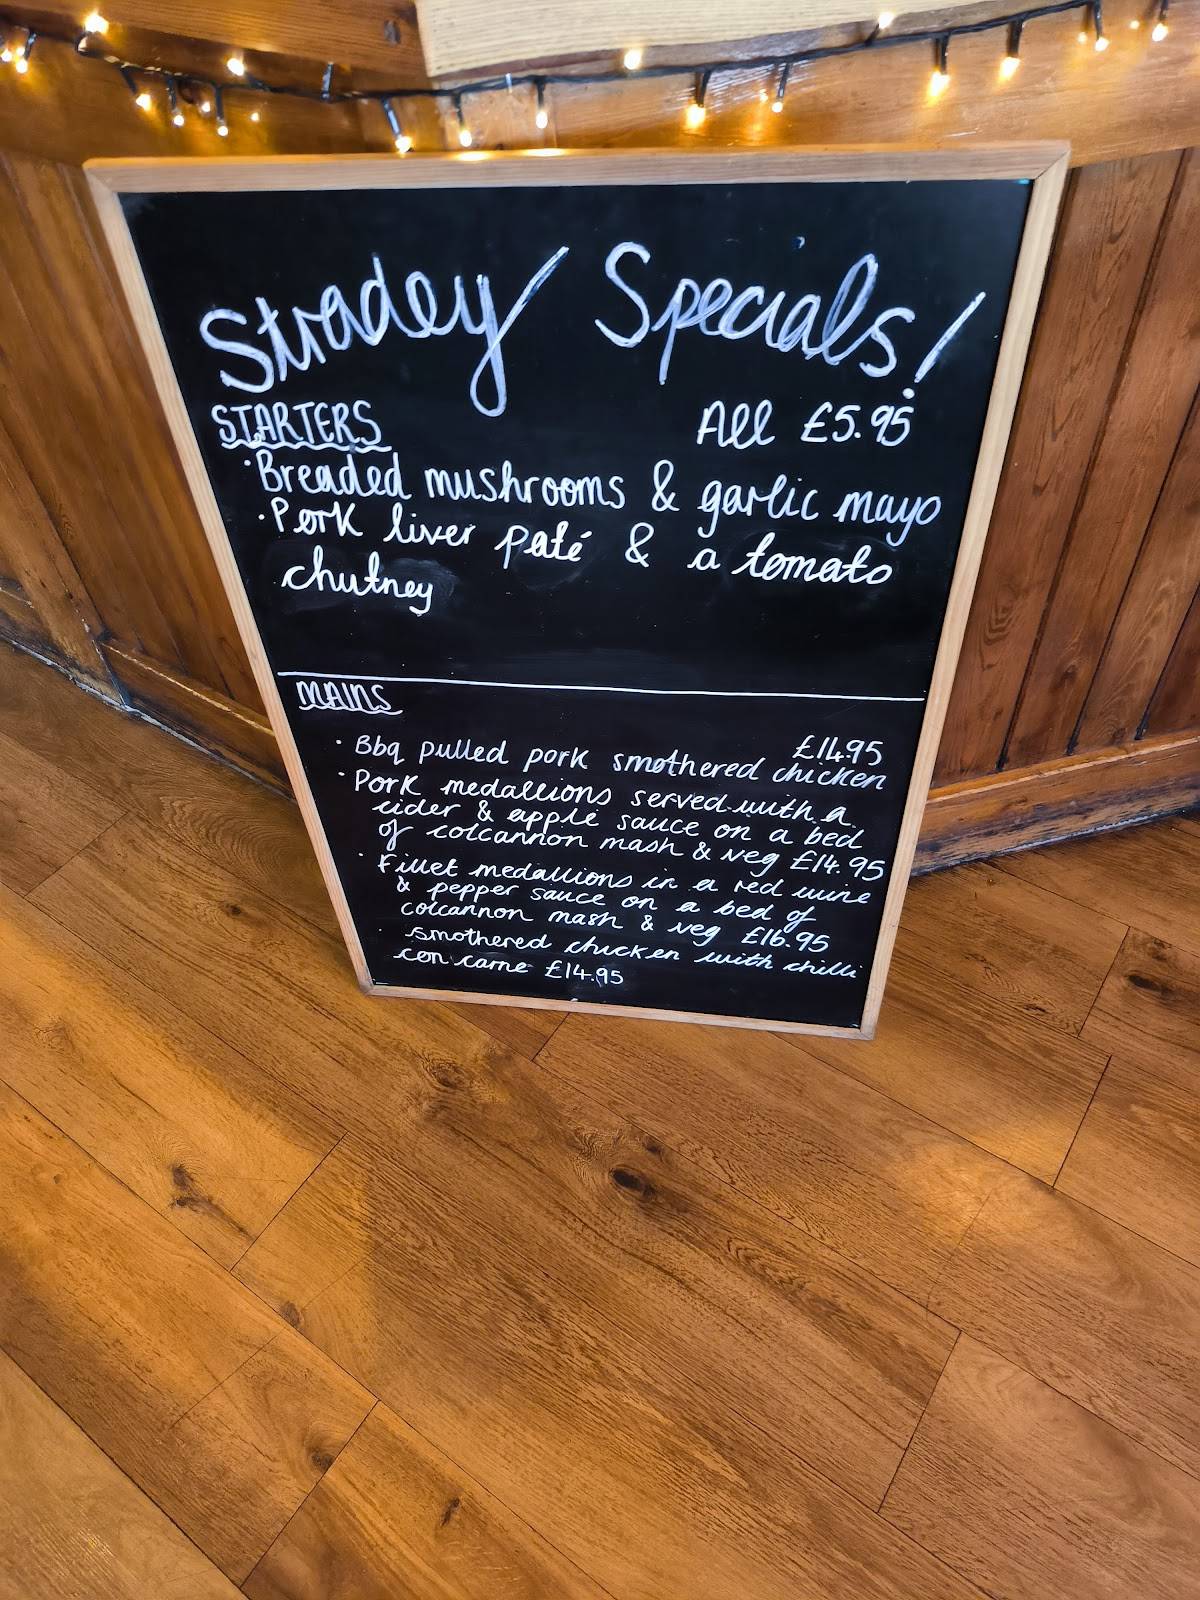 Stradey Specials!
STARTERS All £5.95
· Breaded mushrooms & garlic mayo
· Pork liver paté & a tomato
chutney
MAINS
£14.95
· Bbq pulled pork smothered chicken
· Pork medallions served with a
cider & apple sauce on a bed
of colcannon mash & veg £14.95
· Fillet medallions in a red wine
& pepper sauce on a bed of
colcannon mash & veg £16.95
· smothered chicken with chilli
con carne £14.95